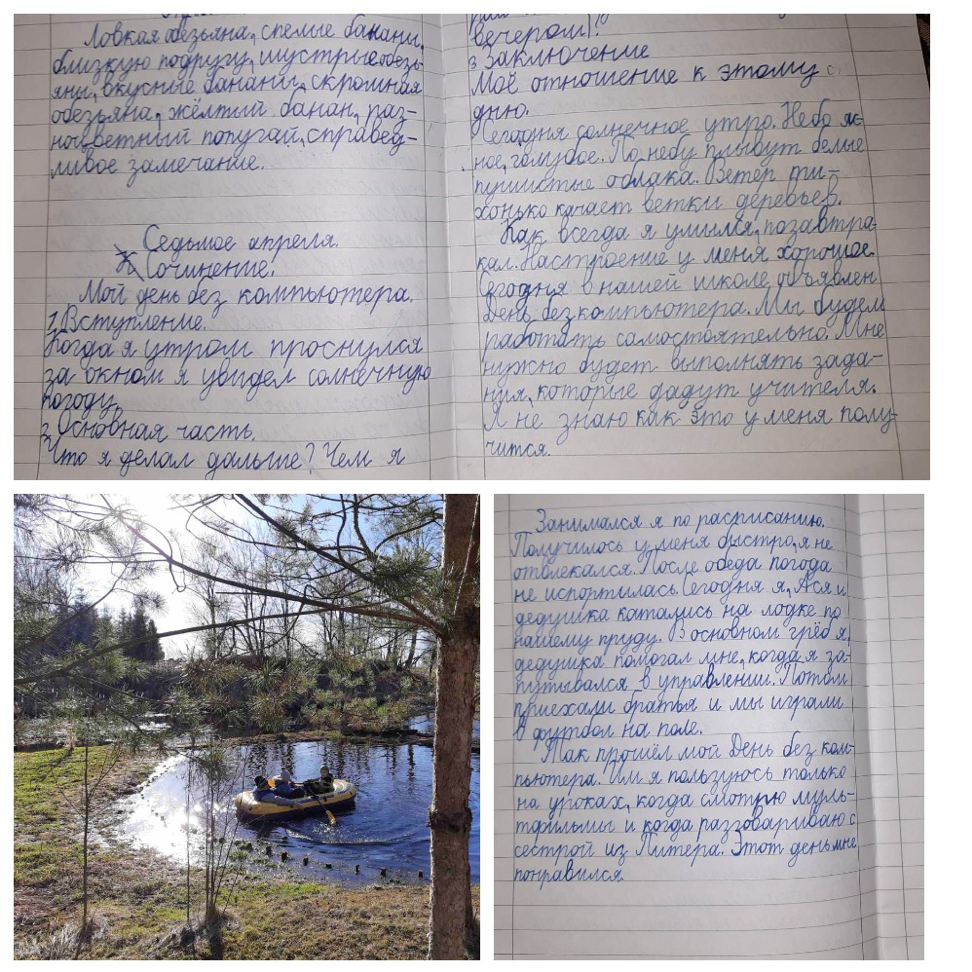 Ловкая обезьяна, спелые бананы,
близкую подругу, шустрые обезь-
яны, вкусные бананы, скромная
обезьяна, жёлтый банан, раз-
ноцветный попугай, справед-
ливое замечание.
Седьмое апреля.
Сочинение.
Мой день без компьютера.
1. Вступление.
Когда я утром проснулся
за окном я увидел солнечную
погоду.
2. Основная часть.
Что я делал дальше? Чем я
вечером!?
3 Заключение
Моё отношение к этому
дню.
Сегодня солнечное утро. Небо яс-
ное, голубое. По небу плывут белые
пушистые облака. Ветер ти-
хонько качает ветки деревьев.
Как всегда я умылся, позавтра-
кал. Настроение у меня хорошее.
Сегодня в нашей школе объявлен
День без компьютера. Мы будем
работать самостоятельно. Мне
нужно будет выполнять зада-
ния, которые дадут учителя.
Я не знаю как это у меня полу-
чится.
Занимался я по расписанию.
Получилось у меня быстро, я не
отвлекался. После обеда погода
не испортилась. Сегодня я, Ася и
дедушка катались на лодке по
нашему пруду. В основном грёб я,
дедушка помогал мне, когда я за-
путывался в управлении. Потом
приехали братья и мы играли
в футбол на поле.
Так прошёл мой День без ком-
пьютера. Им я пользуюсь только
на уроках, когда смотрю муль-
тфильмы и когда разговариваю с
сестрой из Питера. Этот день мне
понравился.